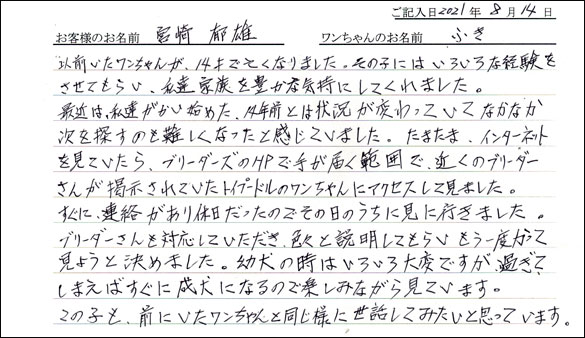 ご記入日2021年8月14日
お客様のお名前 宮崎 郁雄 ワンちゃんのお名前 ふき
以前いたワンちゃんが、14才で亡くなりました。その子にはいろいろな経験を
させてもらい、私達家族を豊かな気持にしてくれました。
最近は、私達がかい始めた、14年前とは状況が変わっていてなかなか
次を探すのも難しくなったと感じていました。たまたま、インターネット
を見ていたら、ブリーダーズのHPで手が届く範囲で、近くのブリーダー
さんが掲示されていたトイプードルのワンちゃんにアクセスして見ました。
すぐに、連絡があり休日だったのでその日のうちに見に行きました。
ブリーダーさんも対応していただき、色々と説明してもらいもう一度かって
見ようと決めました。幼犬の時はいろいろ大変ですが、過ぎて
しまえばすぐに成犬になるので楽しみながら見ています。
この子も、前にいたワンちゃんと同じ様に世話してみたいと思っています。